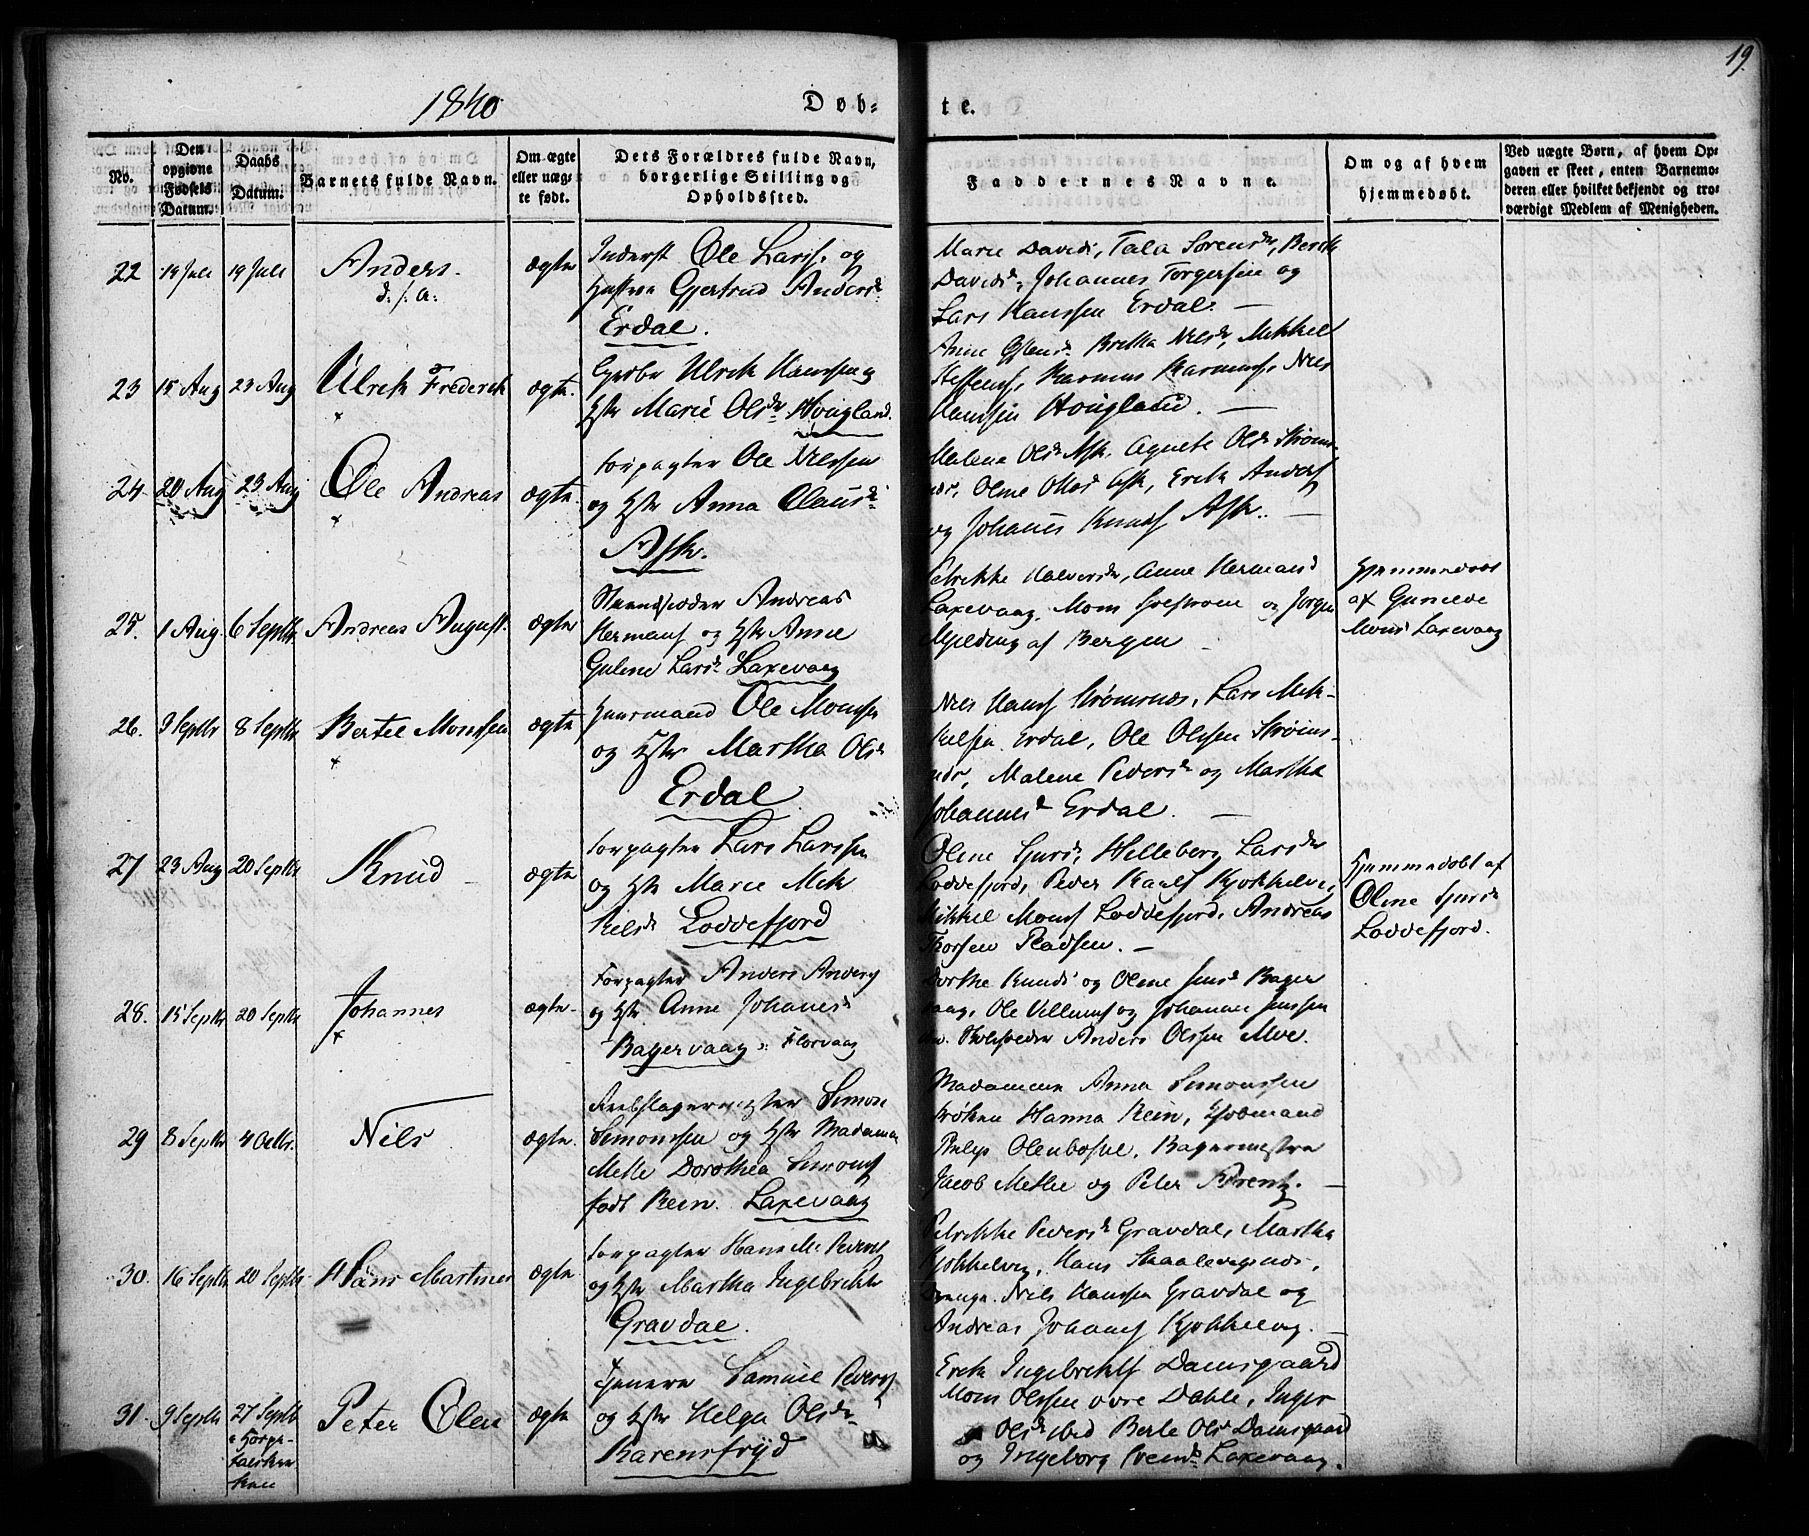 19.
1840
Døb-
te.
No.
Den opgivne Fødsels Datum.
Daabs Datum.
Barnets fulde Navn.
Om ægte eller uæg-te født.
Dets Forældres fulde Navn, borgerlige Stilling og Opholdssted.
Faddernes Navne.
Om og af hvem hjemmedøbt.
Ved uægte Børn, af hvem Op-
gaven er skeet, enten Barnemo-
deren eller hvilket bekjendt og tro-
værdigt Medlem af Menigheden.
22 19 Juli 19 Juli Anders.
d. s. a.
ægte
Inderst Ole Larss. og
Hustru Gjertrud Andersd.
Erdal.
Marie Davidsd, Tala Sørensdr, Berthe
Davidsd, Johannes Torgersen og
Lars Hanssen Erdal. —
23 15 Aug 23 Aug Ulrik Frederik
ægte.
Ulrik Hanssen og
Hstr Marie Olsdr Hougland.
Anne Brithe Nilsdr, Mikkel
Steffens, Rasmus Rasmuss, Niels
Hanssen Hougland. —
24. 20 Aug 23 Aug Ole Andreas
ægte.
Forpagter Ole Nilssen
og Hstr Anna Clausdr
Ask.
Malene Olsdr Ask, Agnete Olsdr Strøms-
næs, Oline Ask, Erik Anderss
og Johanes Knuds Ask. —
25. 1 Aug. 6 Septbr Andreas August.
ægte
Strandsidder Andreas
Hermans og Hstr Anne
Gulene Larsdr Laxevaag
Petrikke Halvorsdr, Anne Hermansd
Laxevaag, Mons og Jørgen
Mylding af Bergen —
Hjemmedøbt
af Gunilde
Monsd Laxevaag
26. 9 Septbr 8 Septbr Bertel Monssen
ægte
Huusmand Ole Monssen
og Hstr Martha Olsdr
Erdal
Niels Hanss Strømsnæs, Lars Mik-
kelsen Erdal, Ole Olssen Strøms-
næs, Malene Pedersdr og Martha
Johannesdr Erdal. —
27 23 Aug 20 Septbr Knud —
ægte
Forpagter Lars Larssen
og Hstr Marie Mik
kelsdr Loddefjord
Oline Sjursd, Helleberg Larsdr
Loddefjord, Peder Kjøkkelvig,
Mikkel Monss Loddefjord, Andreas
Thorsen Pladsen. —
Hjemmedøbt af
Oline Sjursdr
Loddefjord.
28. 15 Septbr 20 Septbr Johannes
ægte.
Forpagter Anders Anderss
og Hstr Anne Johanesd
Bagervaag i Florvaag
Dorthe Knudsd og Oline Jensd Bager
vaag, Ole Villums og Johannes Jenssen
Anders Olssen Alve.
29 8 Septbr 4 Octbr. Nils
ægte.
Reebslagermester Simon
Simonssen og Hstr Madame
Mette Dorothea Simons
født Rein. Laxevaag
Madamerne Anna Simonssen
Frøken Hanna Rein, Kjøbmand
Philip Olenbosne, Bagermester
Jacob Mekke og Peter —
30. 16 Septbr 20 Septbr Hans Martines
ægte
Forpagter Hans M. Peders
og Hstr Martha Ingebrikts
Gravdal.
Petrikke Pedersdr Gravdal, Martha
Kjøkkelvig, Hans Skaalevigsnæs,
Drenge Nils Hanssen Gravdal og
Andreas Johans Kjøkkelvig. —
31. 9 Septbr 27 Septb
i Korps-
kirken
Peter Olen
ægte
Samuel Peders
og Hstr Helga Olsdr
Karensfryd
Erik Ingebrikts Damsgaard
Mons Olssen øvre Dahle, Inger
Olsdr ibid Berte Olsd Damsgaard
og Ingeborg Svendsd Laxevaag.